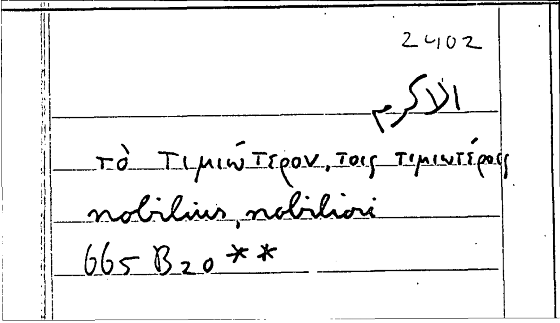 2402
الاكرم
τὸ τιμιώτερον, τοις τιμιωτέροις
nobilius, nobiliori
665 B20**